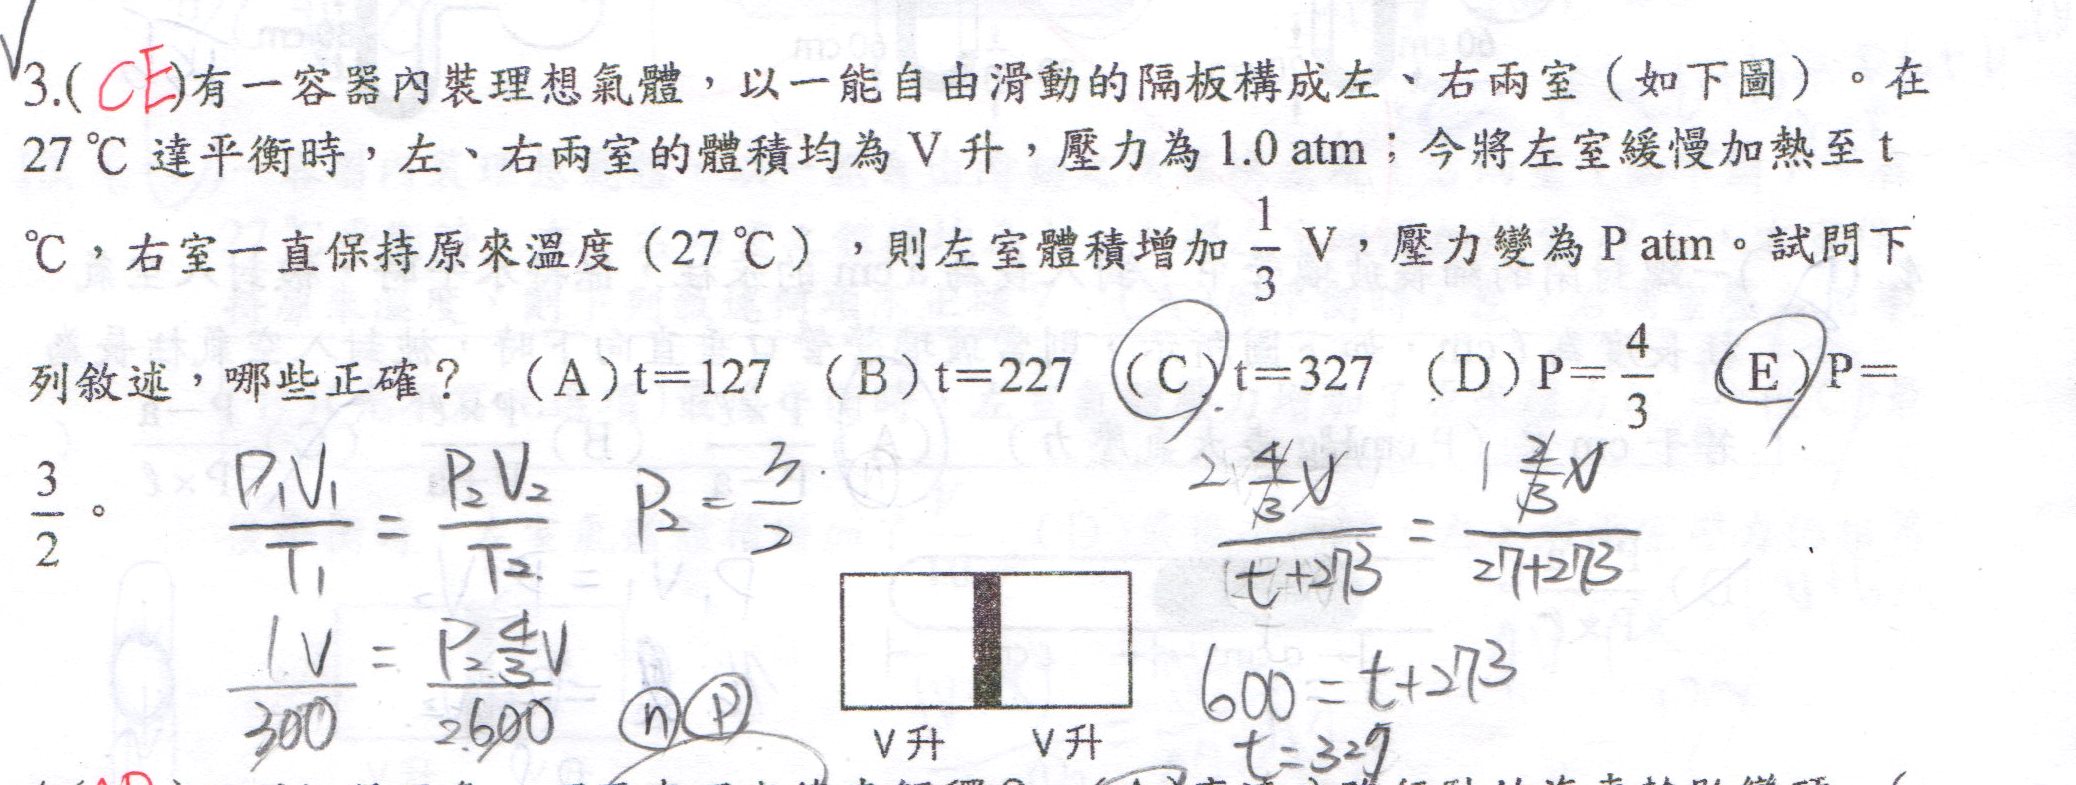 3.(CE)有一容器內裝理想氣體，以一能自由滑動的隔板構成左、右兩室（如下圖）。在
27 ℃ 達平衡時，左、右兩室的體積均為 V 升，壓力為 1.0 atm；今將左室緩慢加熱至 t
℃，右室一直保持原來溫度（27 ℃），則左室體積增加 1/3 V，壓力變為 P atm。試問下
列敘述，哪些正確？ （A）t＝127 （B）t＝227 （C）t＝327 （D）P＝4/3 （E）P＝
3/2。
P₁V₁/T₁ = P₂V₂/T₂ P₂ = 3/2
2 4/3 V/(t+273) = 1 2/3 V/(27+273)
1.V/300 = P₂ 4/3 V/2600
n P
600 = t+273
t=327
V 升 V 升